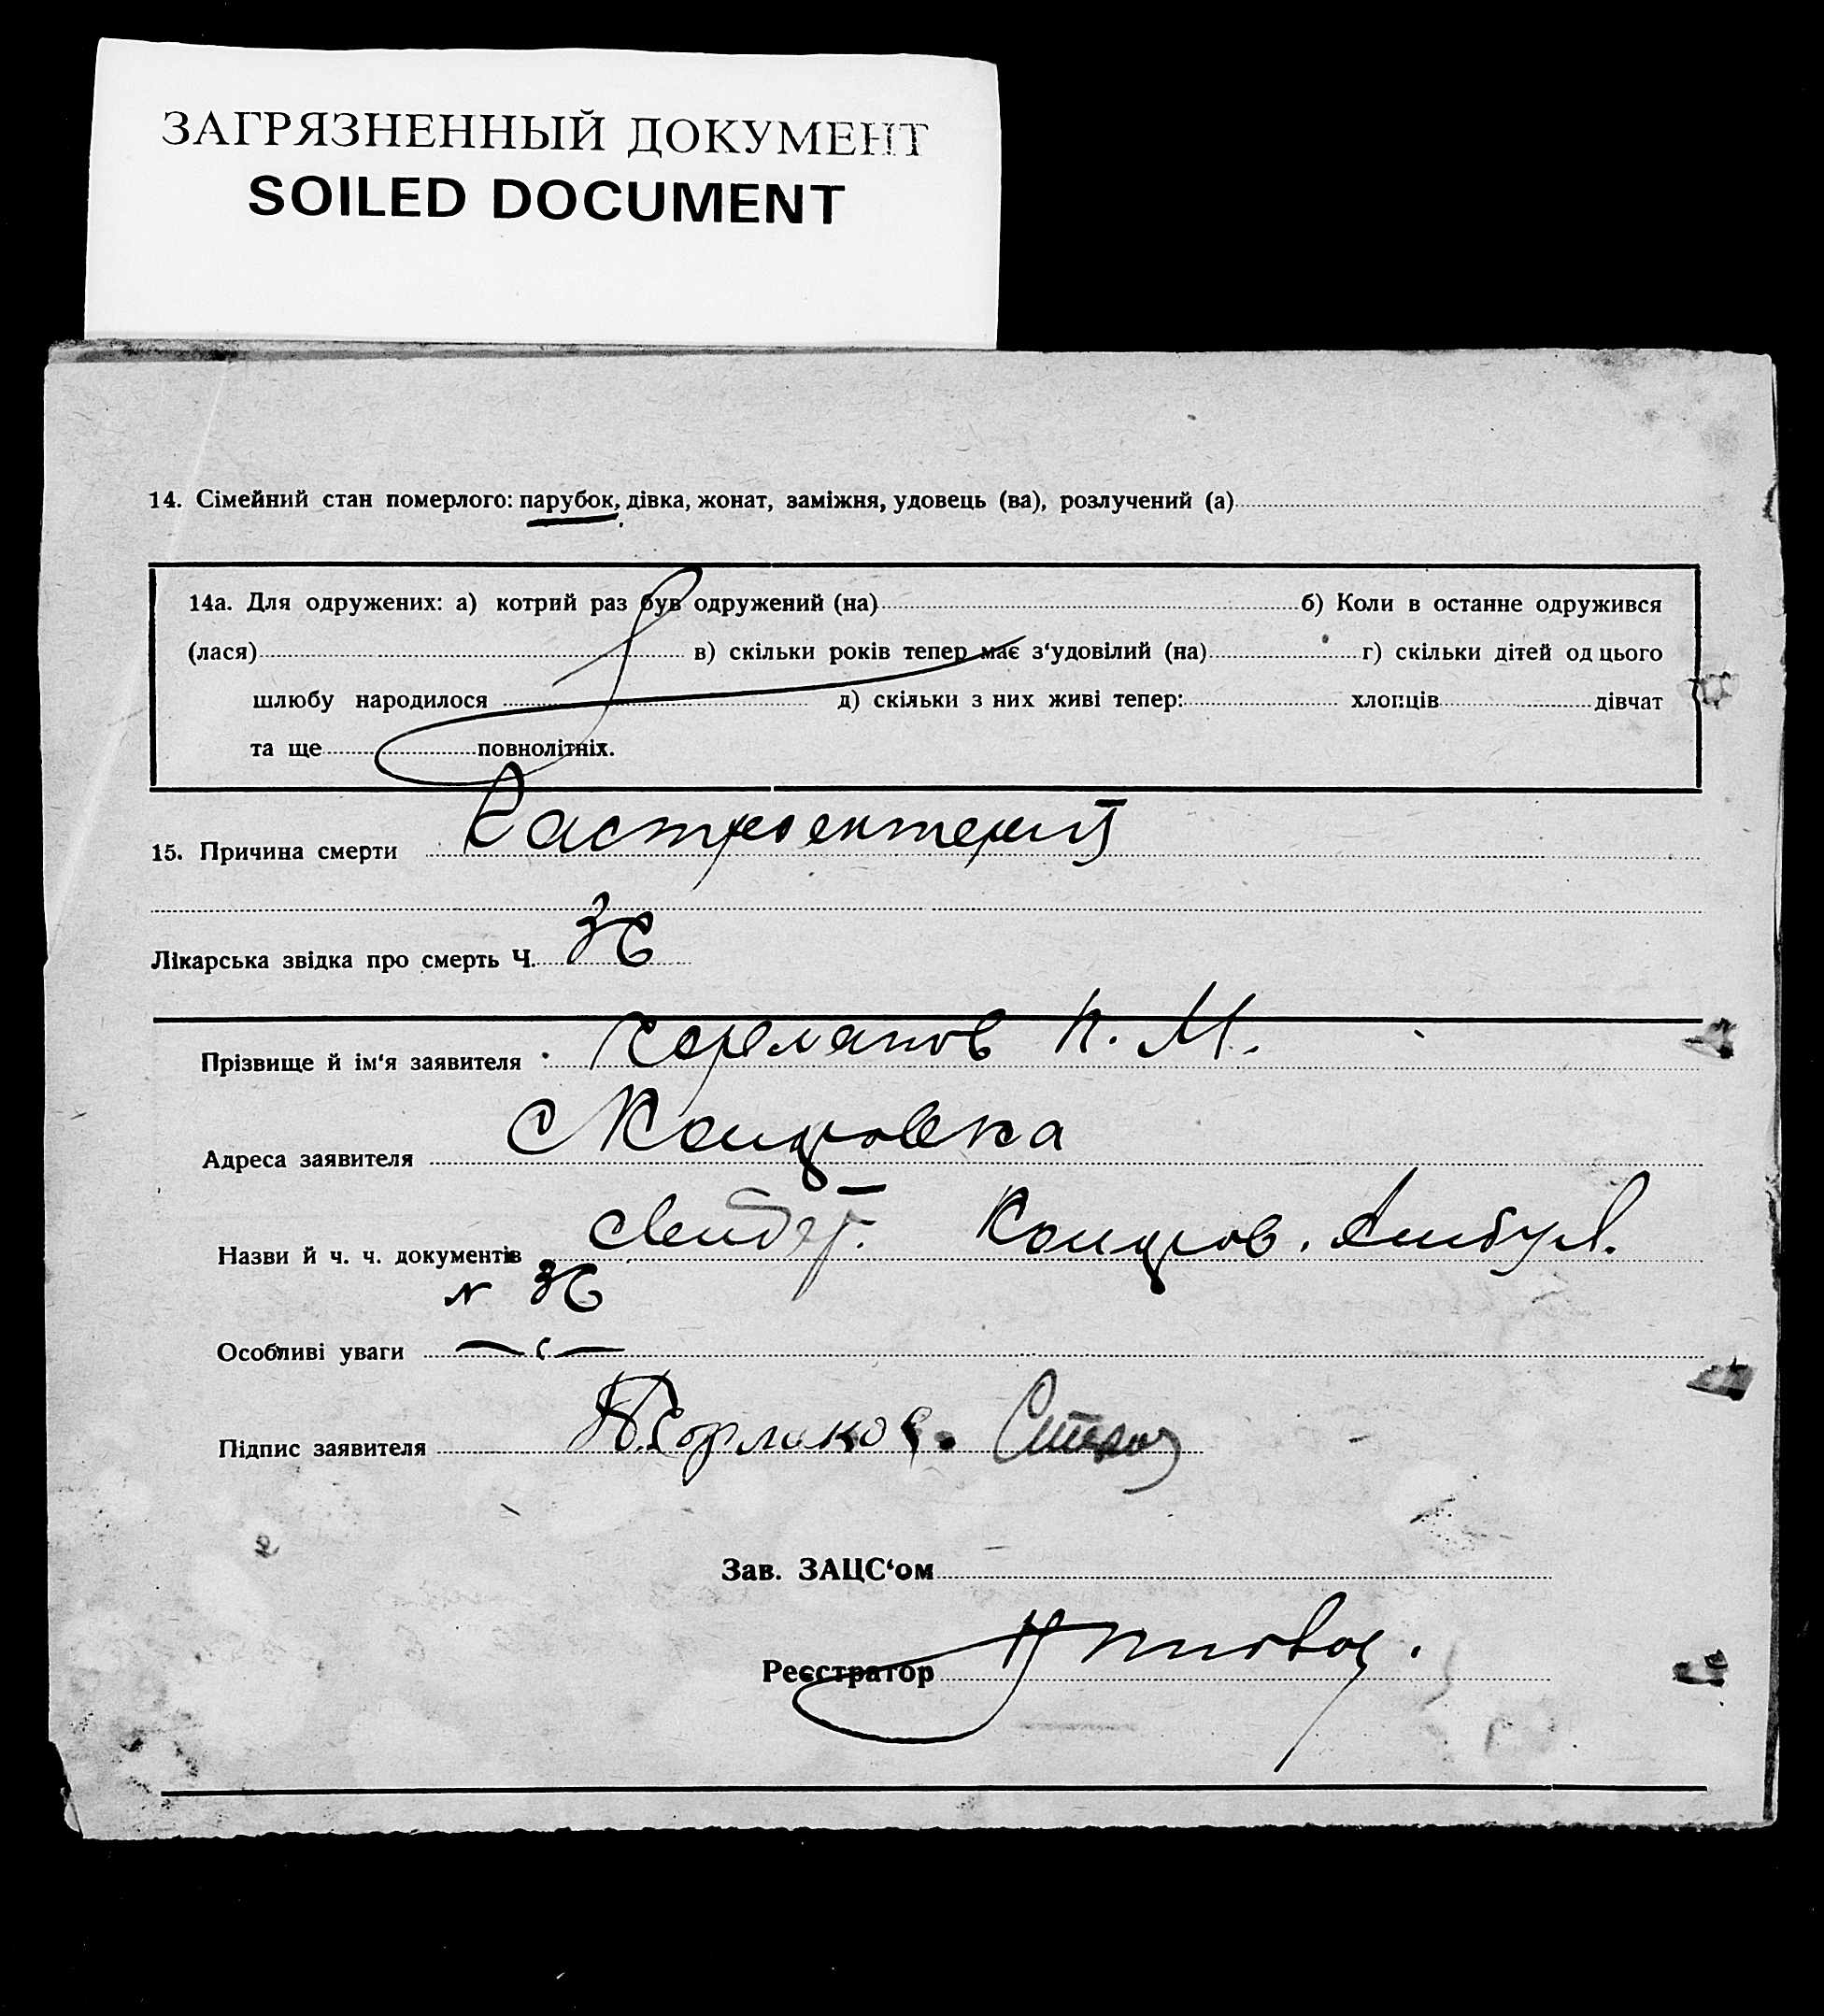 ЗАГРЯЗНЕННЫЙ ДОКУМЕНТ
SOILED DOCUMENT
14. Сімейний стан померлого: парубок, дівка, жонат, заміжня, удовець (ва), розлучений (а)
14а. Для одружених: а) котрий раз був одружений (на) б) Коли в останне одружився
(лася) в) скільки років тепер має з‘удовілий (на) г) скільки дітей од цього
шлюбу народилося д) скільки з них живі тепер: хлопців дівчат
та ще повнолітніх.
15. Причина смерти Гастроентерит
Лікарська звідка про смерть Ч. 36
Прізвище й ім‘я заявителя П. М.
Адреса заявителя
Назви й ч. ч. документів
N 36
Особливі уваги
Підпис заявителя
Зав. ЗАЦС‘ом
Реєстратор